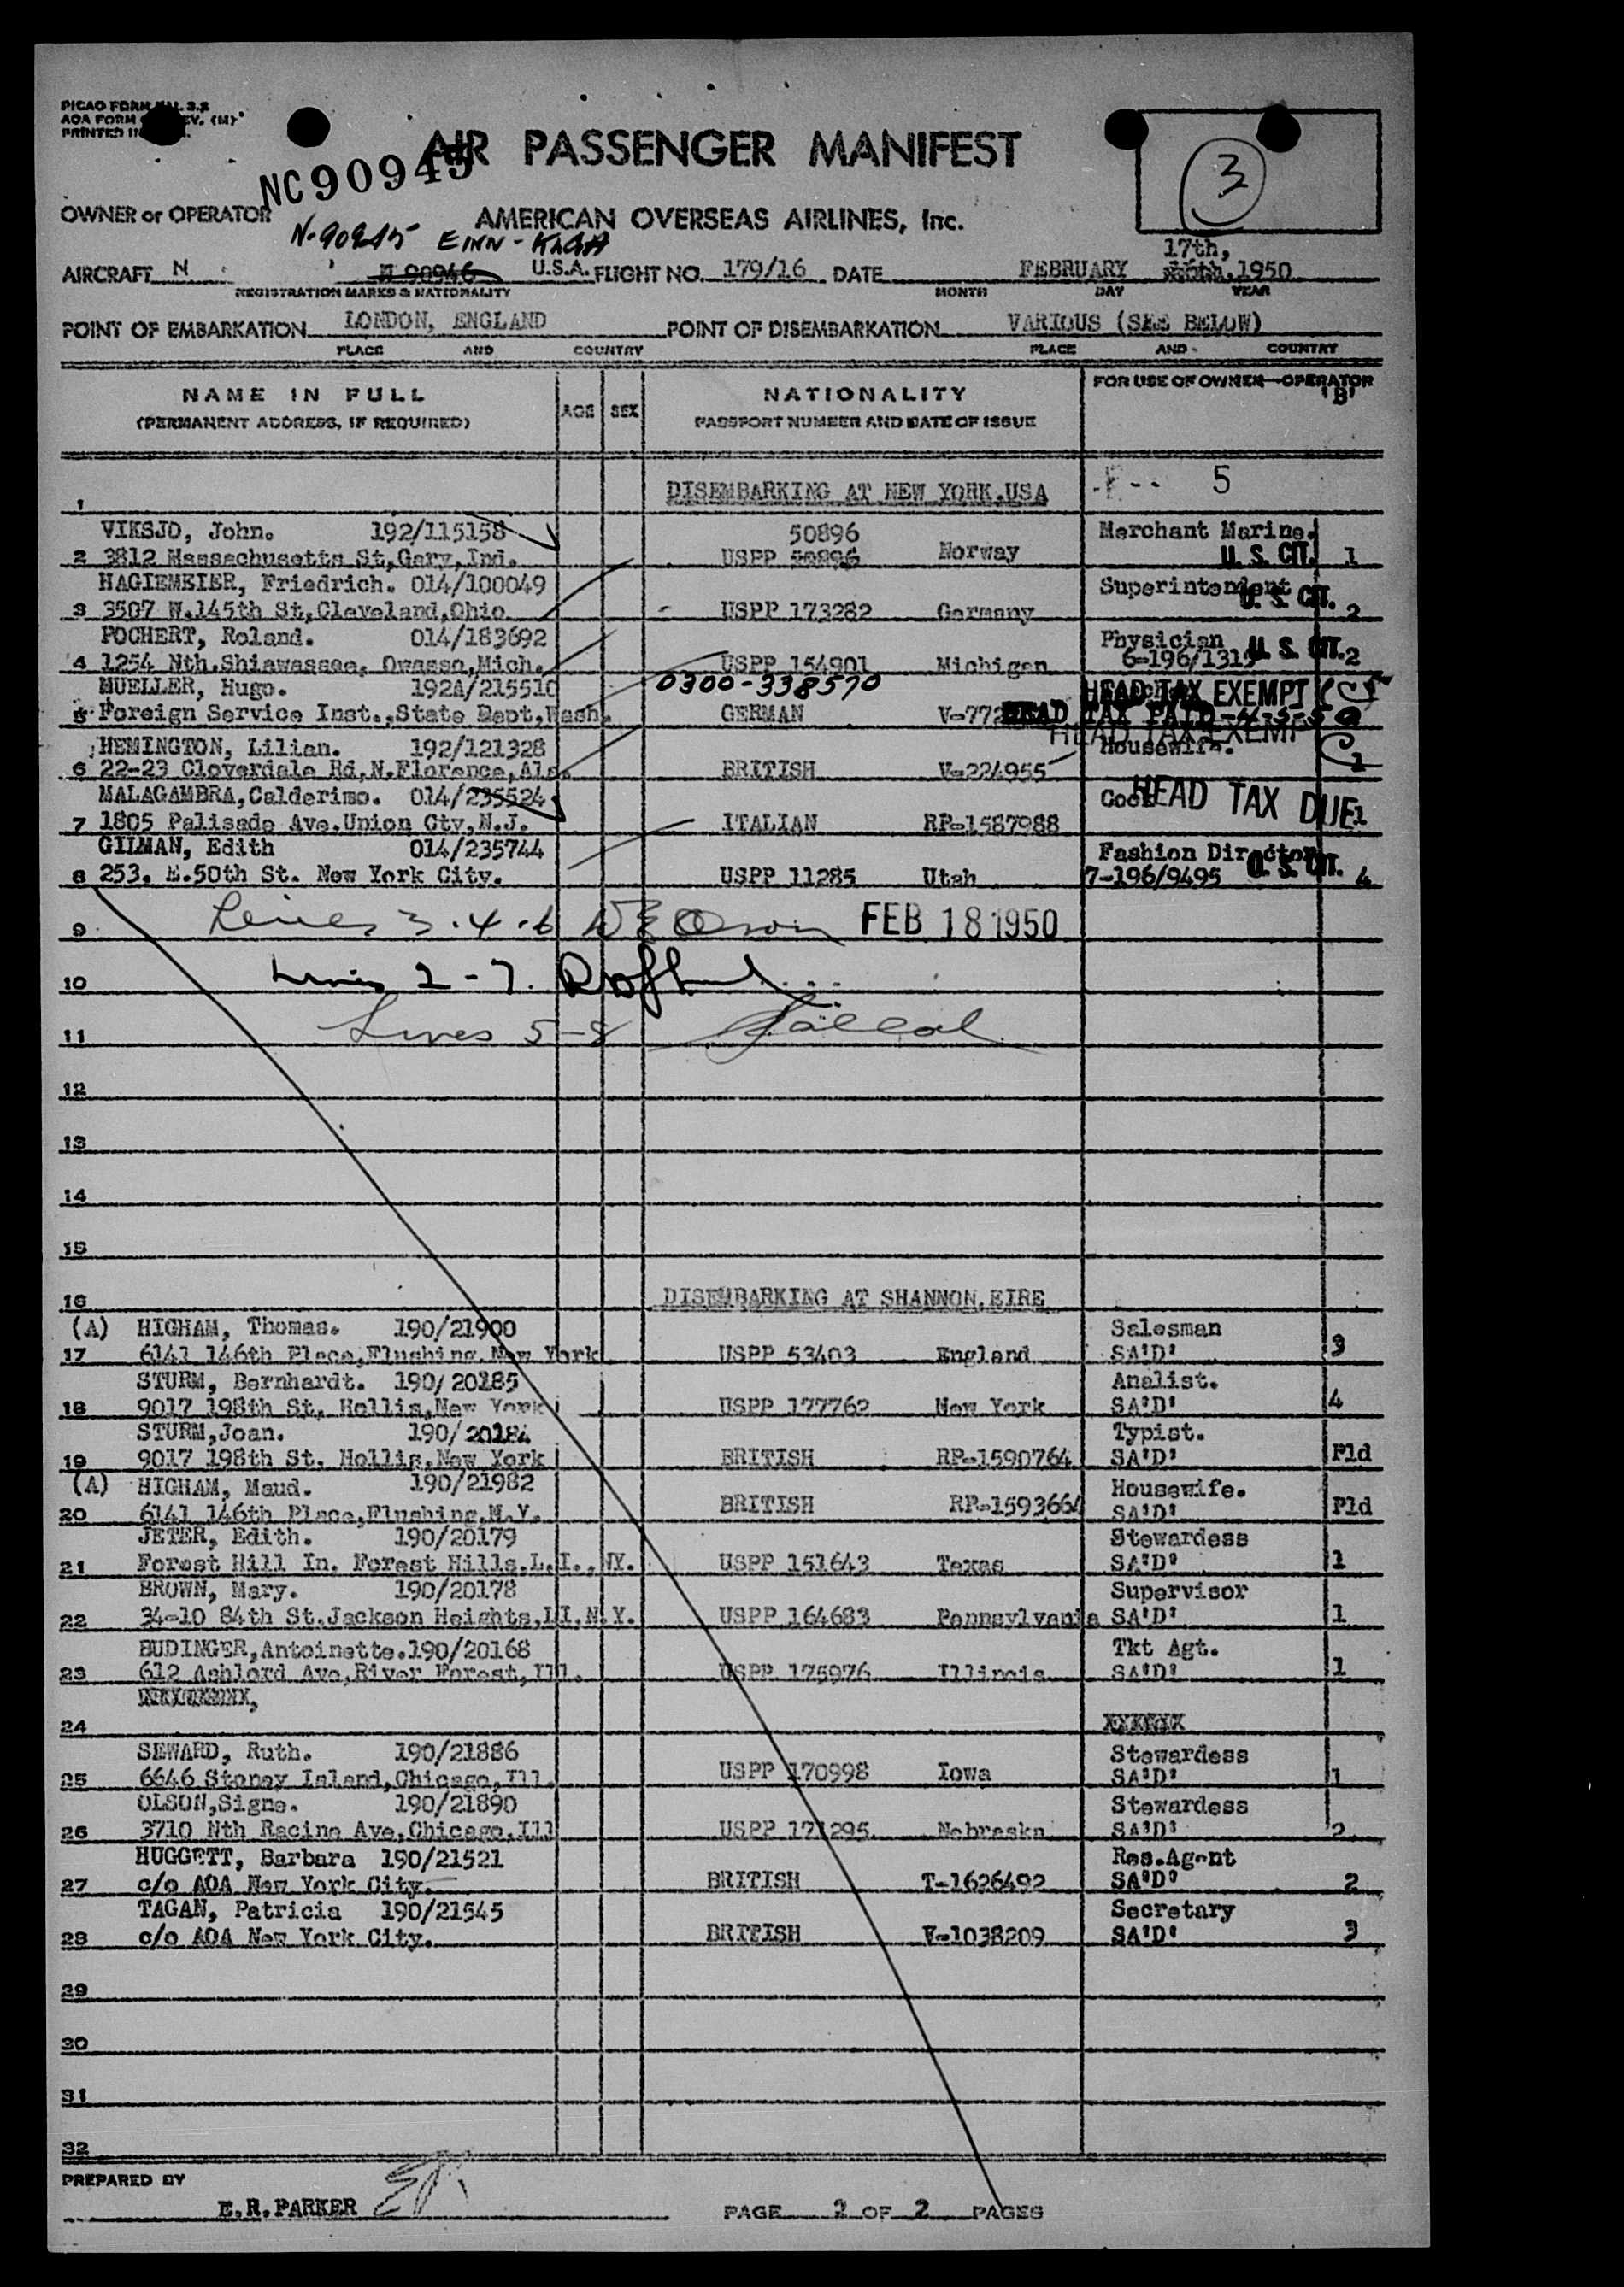 PICAO FORM
AOA FORM
PRINTED IN
AIR PASSENGER MANIFEST
NC90945
3
OWNER or OPERATOR
AMERICAN OVERSEAS AIRLINES, Inc.
N-90945 EINN-KLGA
17th,
AIRCRAFT N N 90946 U.S.A. FLIGHT NO. 179/16 DATE FEBRUARY 1950
REGISTRATION MARKS & NATIONALITY MONTH DAY YEAR
POINT OF EMBARKATION LONDON, ENGLAND POINT OF DISEMBARKATION VARIOUS (SEE BELOW)
PLACE AND COUNTRY PLACE AND COUNTRY
NAME IN FULL AGE SEX NATIONALITY FOR USE OF OWNER—OPERATOR
'B'
(PERMANENT ADDRESS, IF REQUIRED) PASSPORT NUMBER AND DATE OF ISSUE
1 DISEMBARKING AT NEW YORK.USA 5
VIKSJO, John. 192/115158 50896 Merchant Marine.
2 3812 Massachusetts St,Gary,Ind. USPP 50896 Norway U. S. CIT. 1
HAGIEMEIER, Friedrich. 014/100049 Superintendent
3 3507 W.145th St,Cleveland,Ohio USPP 173282 Germany U. S. CIT. 2
POCHERT, Roland. 014/183692 Physician
4 1254 Nth.Shiawassee, Owasso,Mich. USPP 154901 Michigan 6-196/1315 U. S. CIT. 2
MUELLER, Hugo. 192A/215510 0300-338570 HEAD TAX EXEMPT
5 Foreign Service Inst.,State Dept,Wash. GERMAN V-772 HEAD TAX PAID-4-5-50
HEAD TAX EXEMPT
HEMINGTON, Lilian. 192/121328 Housewife.
6 22-23 Cloverdale Rd,N.Florence,Ala. BRITISH V-224955 1
MALAGAMBRA,Calderimo. 014/235524 Cook HEAD TAX DUE
7 1805 Palisade Ave.Union Cty,N.J. ITALIAN RP-1587988 1
GILMAN, Edith 014/235744 Fashion Director
8 253. E.50th St. New York City. USPP 11285 Utah 7-196/9495 U. S. CIT. 4
9 Lines 3.4.6 FEB 18 1950
10 Lines 2-7.
11 Lines 5-8
12
13
14
15
16 DISEMBARKING AT SHANNON.EIRE
(A) HIGHAM, Thomas. 190/21900 Salesman
17 6141 146th Place,Flushing.New York USPP 53403 England SA'D' 3
STURM, Bernhardt. 190/20185 Analist.
18 9017 198th St, Hollis,New York USPP 177762 New York SA'D' 4
STURM,Joan. 190/20184 Typist.
19 9017 198th St. Hollis,New York BRITISH RP-1590764 SA'D' Pld
(A) HIGHAM, Maud. 190/21982 Housewife.
20 6141 146th Place,Flushing,N.Y. BRITISH RP-1593664 SA'D' Pld
JETER, Edith. 190/20179 Stewardess
21 Forest Hill In. Forest Hills.L.I.,NY. USPP 151643 Texas SA'D' 1
BROWN, Mary. 190/20178 Supervisor
22 34-10 84th St.Jackson Heights,LI,N.Y. USPP 164683 Pennsylvania SA'D' 1
BUDINGER,Antoinette.190/20168 Tkt Agt.
23 612 Ashlord Ave,River Forest,Ill. USPP 175976 Illinois SA'D' 1
24
SEWARD, Ruth. 190/21886 Stewardess
25 6646 Stoney Island,Chicago,Ill. USPP 170998 Iowa SA'D' 1
OLSON,Signe. 190/21890 Stewardess
26 3710 Nth Racine Ave,Chicago,Ill USPP 171295 Nebraska SA'D' 2
HUGGETT, Barbara 190/21521 Res.Agent
27 c/o AOA New York City. BRITISH T-1626492 SA'D' 2
TAGAN, Patricia 190/21545 Secretary
28 c/o AOA New York City. BRITISH V-1038209 SA'D' 3
29
30
31
32
PREPARED BY
E.R.PARKER PAGE 2 OF 2 PAGES